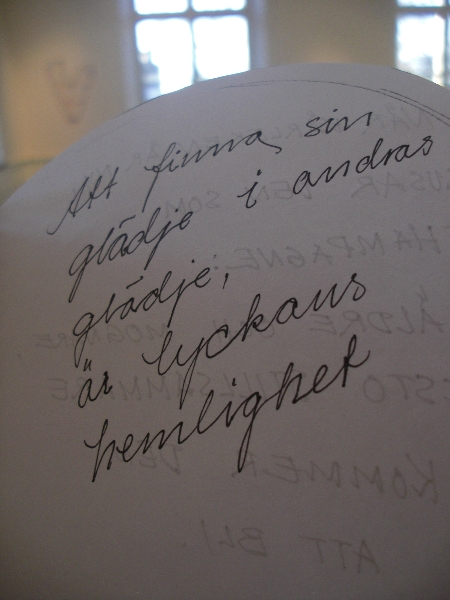 Att finna sin
glädje i andras
glädje,
är lyckans
hemlighet